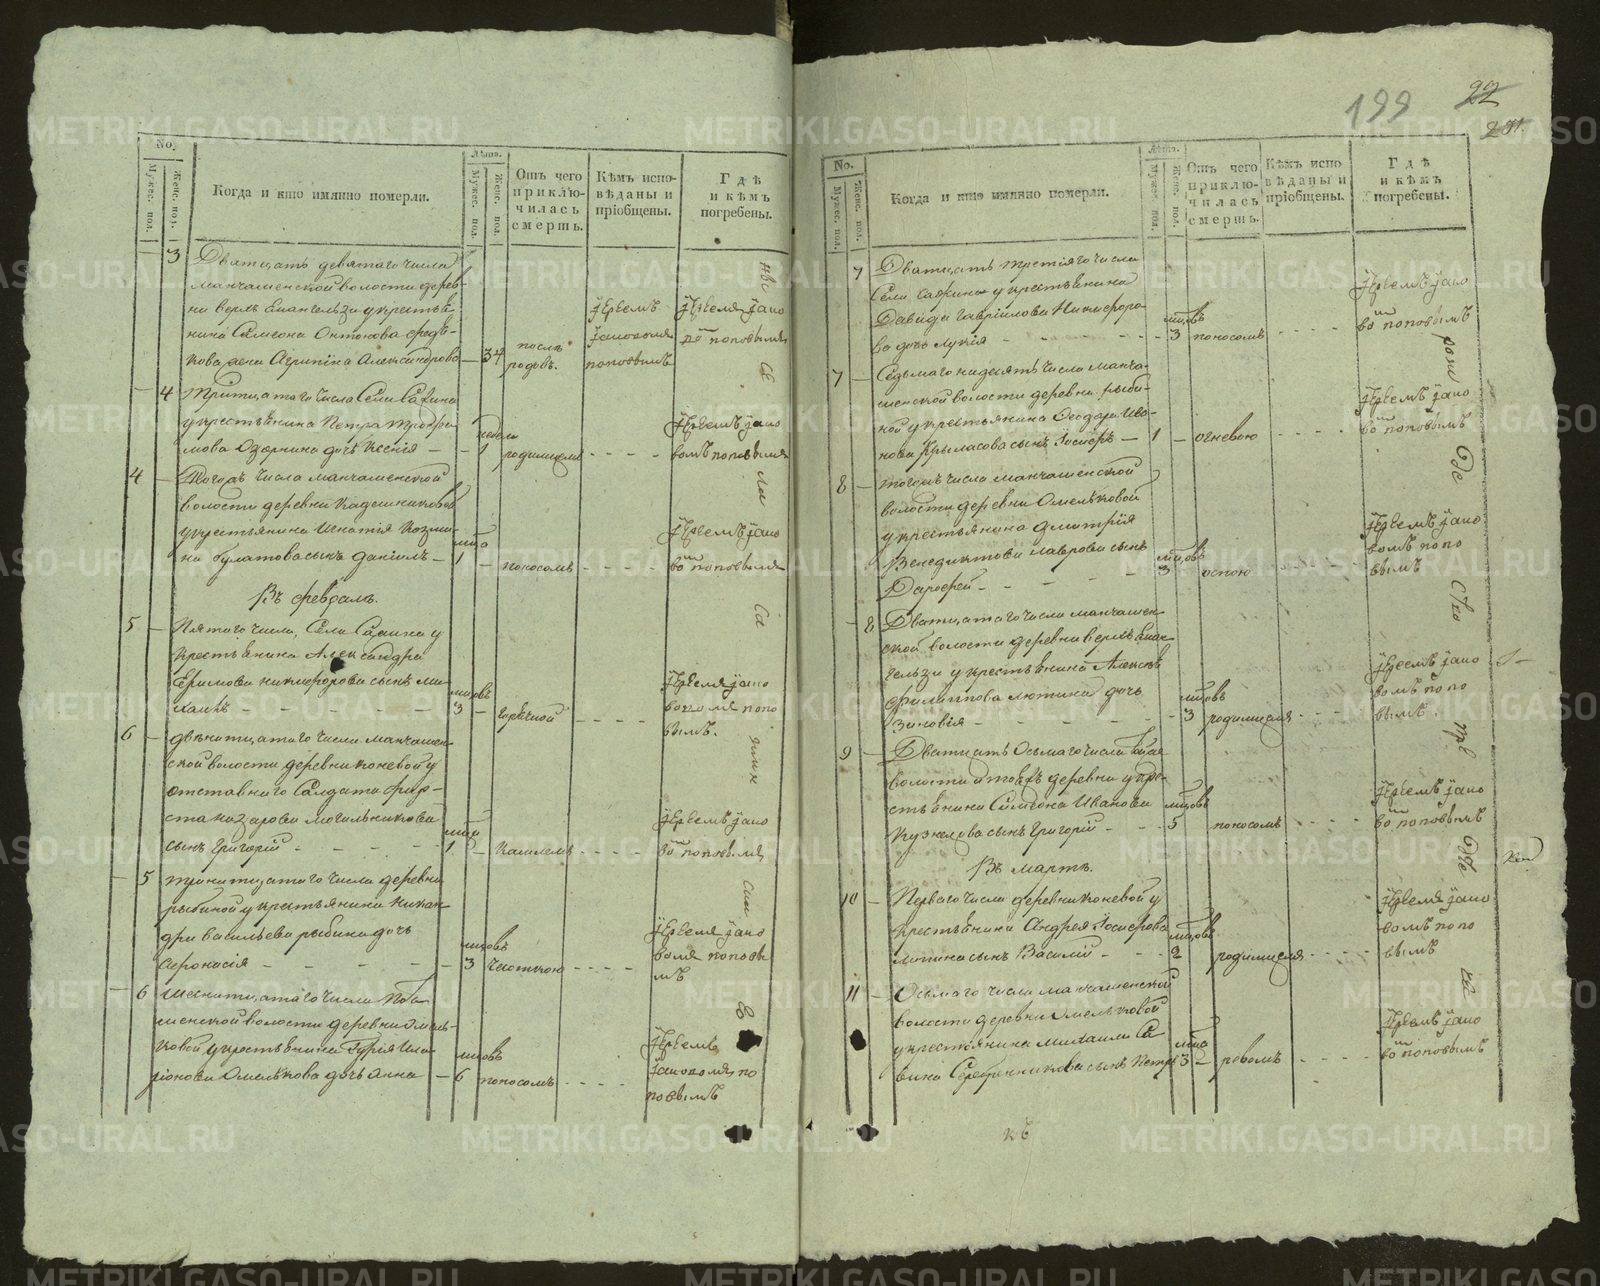 No.
Мужес. пол.
Женс. пол.
Когда и кто имянно померли.
Лѣта.
Мужес. пол.
Женс. пол.
Отъ чего
приклю-
чилась
смерть.
Кѣмъ испо-
вѣданы и
пріобщены.
Гдѣ
и кѣмъ
погребены.
3
Дватцать девятаго числа
манчаженской волости дерев-
ни верхъ Бианъ
нина Симеона Антонова
жена Агрипина Александрова — 34
послѣ
родовъ.
Іереемъ
Іаковомъ
поповымъ
Іереемъ Іако
поповымъ
4
Тритцатаго числа Села Сажина
у крестьянина Петра Трофи-
мова дочь Ксенія — —
недели
1
родимцемъ
Іереемъ Іако
вомъ поповымъ
4
Тогожъ числа манчаженской
волости деревни
у крестьянина Игнатія Козми-
на булатова сынъ Даніилъ —
1
поносомъ
Іереемъ Іако
поповымъ
Въ февралѣ.
5
Пятаго числа, Села Сажина у
крестьянина Александра
Ефимова никифорова сынъ ми-
хаилъ
мцовъ
3
горячкой
Іереемъ Іако
вомъ попо
вымъ.
6
двенатцатаго числа манчажен-
ской волости деревни коневой у
отставнаго Салдата
назарова могильникова
сынъ Григорій
1
кашлемъ
Іереемъ Іако
поповымъ
5
тринатцатаго числа деревни
рыбиной у крестьянина никан-
дра васильева рыбина дочь
Афонасія
мцовъ
3
чесоткою
Іереемъ Іако
вомъ поповы
мъ
6
шеснатцатаго числа
волости деревни Омель-
ковой у крестьянина Гурія Ила-
ріонова Омелькова дочь Анна —
мцовъ
6
поносомъ
Іереемъ
Іаковомъ по
повымъ
199
22
No.
Мужес. пол.
Женс. пол.
Когда и кто имянно померли.
Лѣта.
Мужес. пол.
Женс. пол.
Отъ чего
приклю-
чилась
смерть.
Кѣмъ испо-
вѣданы и
пріобщены.
Гдѣ
и кѣмъ
погребены.
7
Дватцать третіяго числа
Села сажина у крестьянина
Давида гавріилова Никифоро-
ва дочь лукія
мцовъ
3
поносомъ
Іереемъ Іако
поповымъ
7
Седьмаго надесять числа манча-
женской волости деревни рыби-
ной у крестьянина Феодора Ива-
нова Крыласова сынъ Іосифъ —
1
огневою
Іереемъ Іако
поповымъ
8
тогожъ числа манчаженской
волости деревни Омельковой
у крестьянина Дмитрія
Венедиктова лаврова сынъ
Дарофей —
мцовъ
3
оспою
Іереемъ Іако
вомъ попо
вымъ
8
Дватцатаго числа манчажен-
ской волости деревни верхъ Биан-
у крестьянина Алексѣя
филиппова лютина дочь
Зиновія
мцовъ
3
родимцемъ
Іереемъ Іако
вомъ попо
вымъ.
9
Дватцать Осьмаго числа
волости и тоежъ деревни у кре-
стьянина Симеона Иванова
Кузнецова сынъ Григорій
мцовъ
5
поносомъ
Іереемъ Іако
поповымъ
Въ мартѣ.
10
Перваго числа деревни коневой у
крестьянина Андрея Іосифова
сынъ Василій
мцовъ
2
родимцемъ
Іереемъ Іако
вомъ попо
вымъ
11
Осьмаго числа манчаженской
волости деревни Омельковой
у крестьянина михаила Са-
вина Серебренникова сынъ Петръ
3
ревомъ
Іереемъ Іако
поповымъ